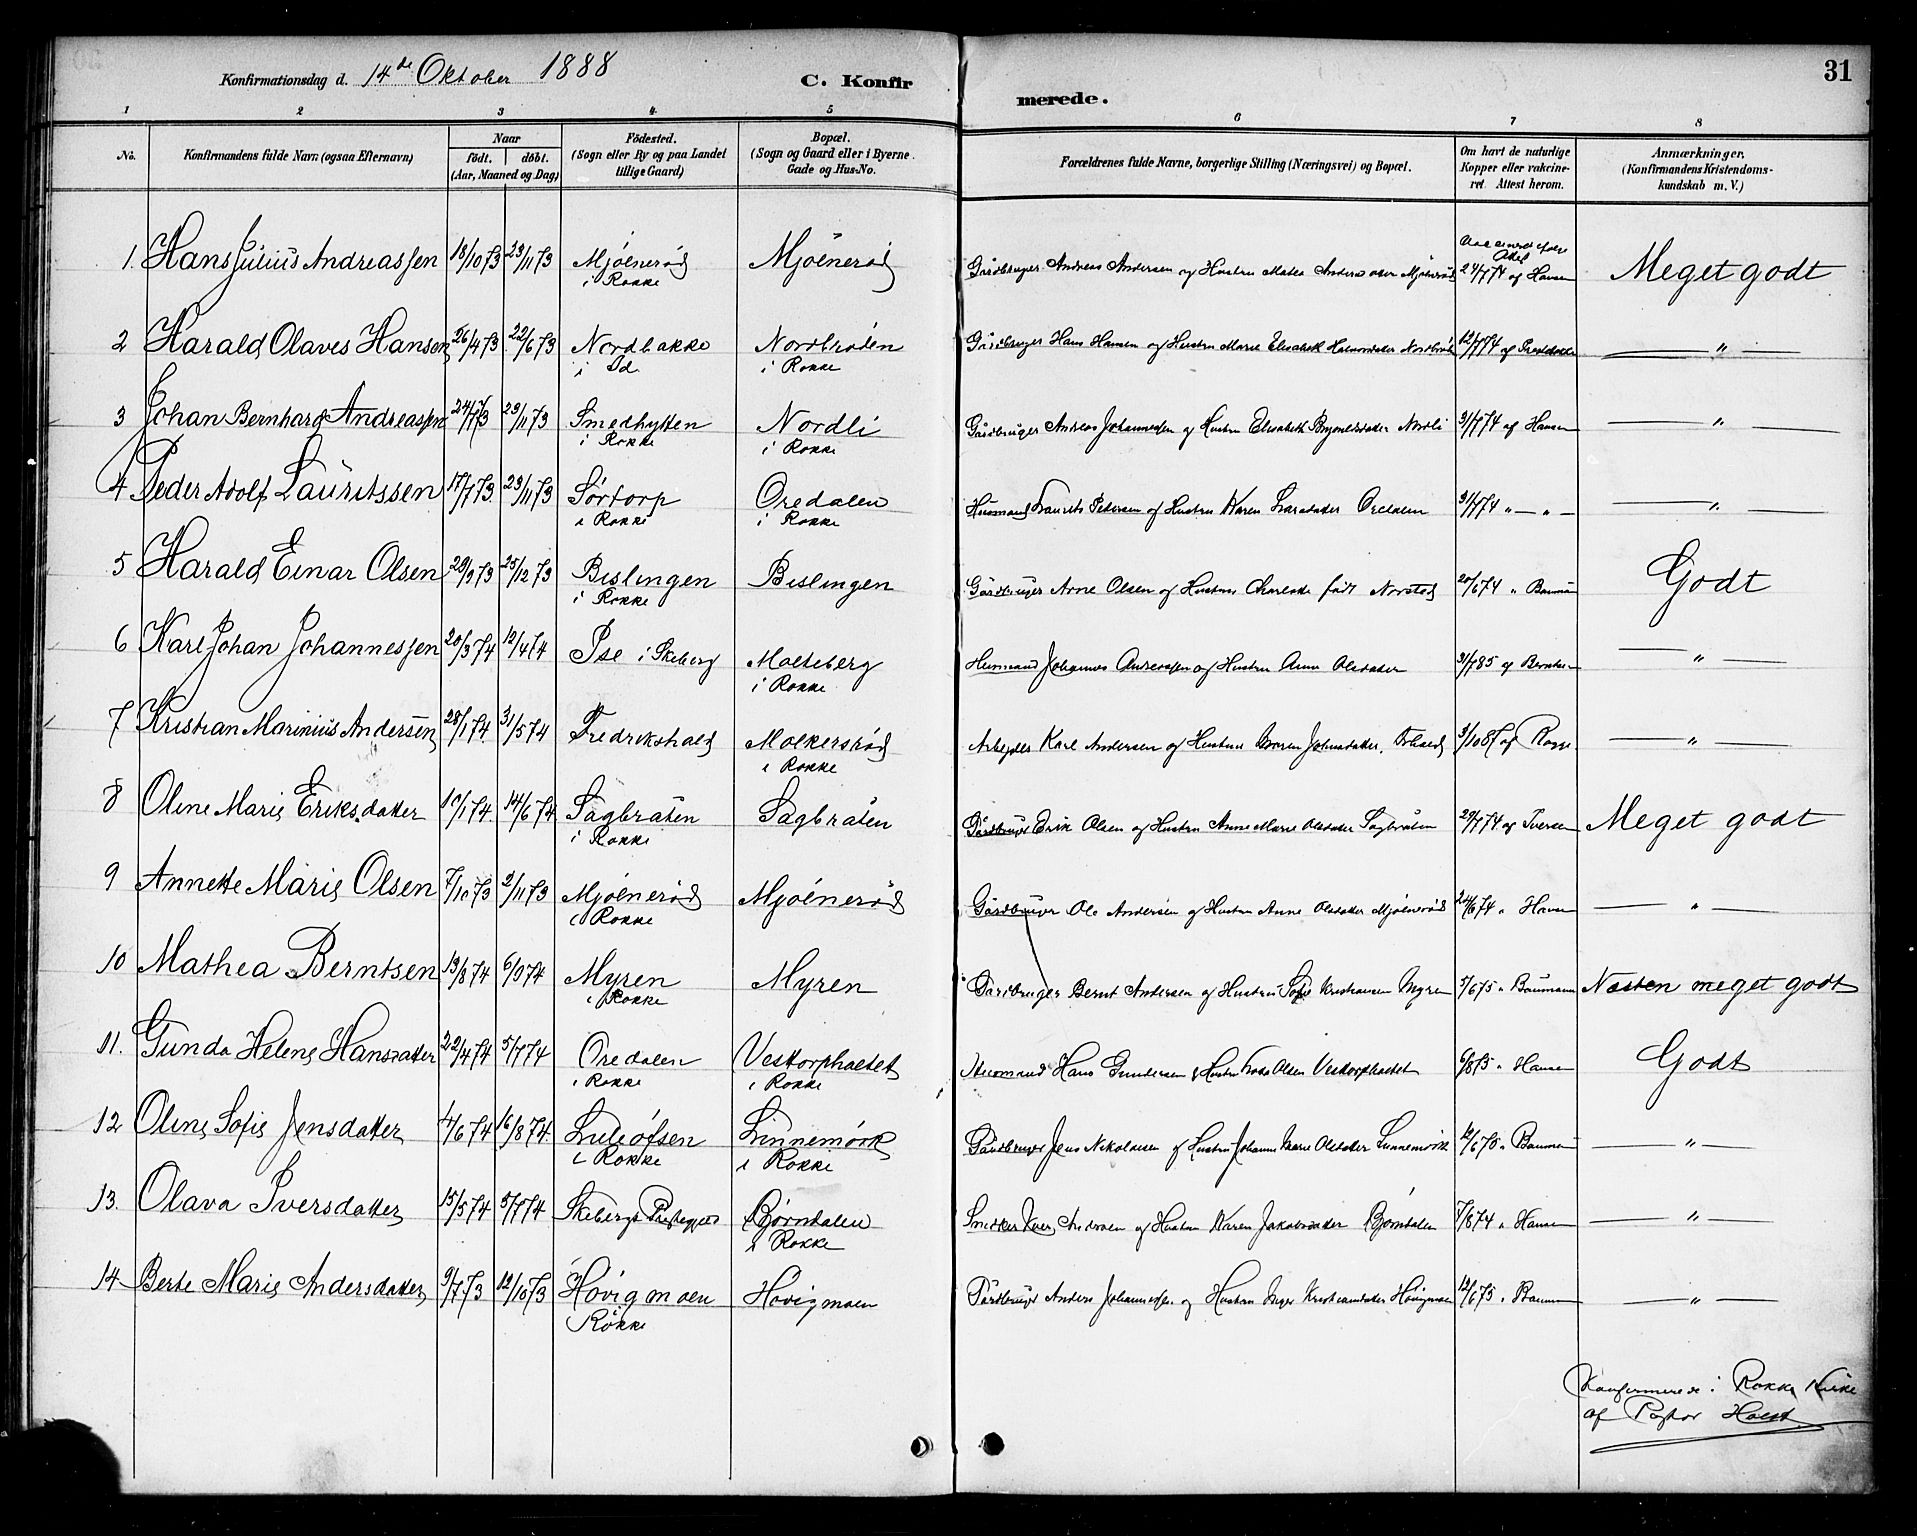 Konfirmationsdag d. 14de Oktober 1888
C. Konfirmerede.
31
1 2 3 4 5 6 7 8
No. | Konfirmandens fulde Navn (ogsaa Efternavn) | Naar født. | døbt. (Aar, Maaned og Dag) | Fødested. (Sogn eller By og paa Landet tillige Gaard) | Bopæl. (Sogn og Gaard eller i Byerne Gade og Hus-No. | Forældrenes fulde Navne, borgerlige Stilling (Næringsvei) og Bopæl. | Om havt de naturlige Kopper eller vakcineret. Attest herom. | Anmærkninger. (Konfirmandens Kristendomskundskab m. V.)
1. Hans Julius Andreassen 18/10 73 23/11 73 Mjølnerød i Rokke Mjølnerød Gårdbruger Andreas Andersen og Hustru Mjølnerød 24/7 74 af Hansen Meget godt
2 Harald Olaves Hansen 26/4 73 22/6 73 Nordbakke i Id Nordbråten i Rokke Gårdbruger Hans Hansen og Hustru Marie Elisabeth Halvorsdatter Nordbråten 12/7 74 af — " —
3 Johan Bernhard Andreassen 24/7 73 23/11 73 Smedhytten i Rokke Nordli i Rokke Gårdbruger Andreas Johannessen og Hustru Elisabeth Nordli 31/7 74 af Hansen — " —
4 Peder Adolf Lauritssen 17/7 73 23/11 73 Sørtorp i Rokke Oredalen i Rokke Husmand Laurits Pedersen og Hustru Karen Larsdatter Oredalen 31/7 74 " — " — — " —
5 Harald Einar Olsen 29/9 73 25/12 73 Bislingen i Rokke Bislingen Gårdbruger Arne Olsen og Hustru født 20/6 74 " Godt
6 Karl Johan Johannessen 20/3 74 12/4 74 Ise i Skeberg Molteberg i Rokke Husmand Johannes Andreassen og Hustru Anne Olsdatter 31/7 85 af Berntsen — " —
7 Kristian Marinius Andersen 28/1 74 31/5 74 Fredrikshald Molkersrød i Rokke Arbeyder Karl Andersen og Hustru Maren Johnsdatter. af — " —
8 Oline Marie Eriksdatter 14/6 74 Sagbråten i Rokke Sagbråten Gårdbruger Erik Olsen og Hustru Anne Marie Olsdatter Sagbråten 29/7 74 af Iversen Meget godt
9 Annette Marie Olsen 7/10 73 2/11 73 Mjølnerød i Rokke Mjølnerød Gårdbruger Ole Andersen og Hustru Anne Olsdatter Mjølnerød 24/6 74 " Hansen — " —
10 Mathea Berntsen 13/8 74 6/9 74 Myren i Rokke Myren Gårdbruger Bernt Andersen og Hustru Sofie Kristiansen Myren 5/6 75 " Baumann Næsten meget godt
11. Gunda Helene Hansdatter 22/4 74 5/7 74 Oredalen i Rokke Vestorphaelet i Rokke Husmand Hans Gundersen & Hustru Olsen Vestorphaelet 6/8 75 " Hansen Godt
12 Oline Sofie Jensdatter 4/6 74 16/8 74 i Rokke Linnemørk i Rokke Gårdbruger Jens Nikolaisen og Hustru Johanne Marie Olsdatter Linnemørk " — " —
13. Olava Iversdatter 15/5 74 5/7 74 Skebergs Bjørndalen i Rokke Smeker Iver og Hustru Karen Jakobsdatter Bjørndalen 7/8 74 " Hansen — " —
14 Berte Marie Andersdatter 9/7 73 12/10 73 Høvigmoen Rokke Høvigmoen Gårdbruger Anders Johannessen og Hustru Inger Kristiansdatter Høvigmoen 12/6 75 " — " —
Konfirmerede i Rokke Kirke
af Pastor Holst